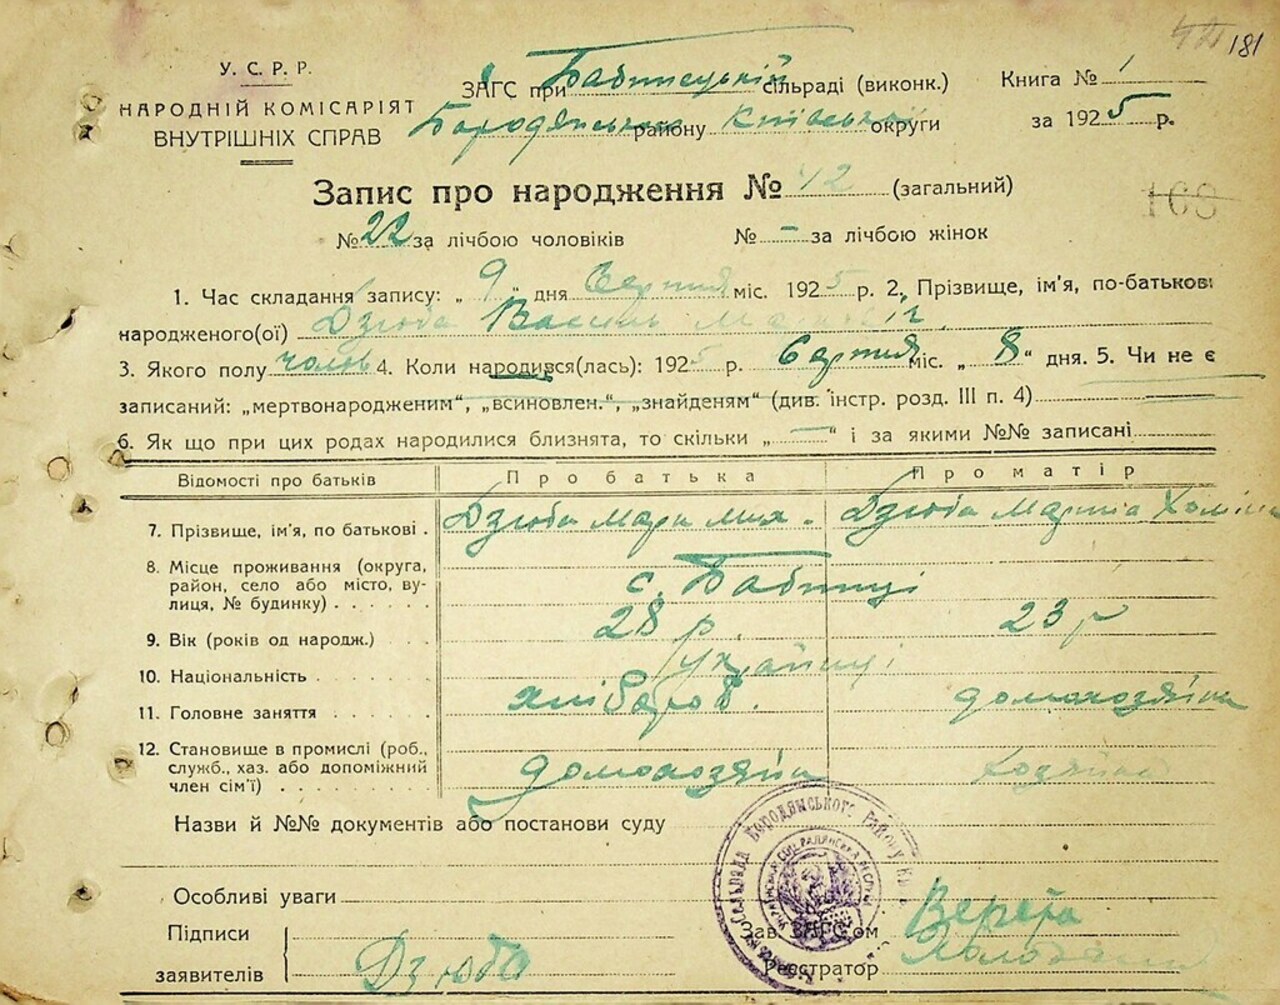 181
У. С. Р. Р.
НАРОДНІЙ КОМІСАРІЯТ
ВНУТРІШНІХ СПРАВ
ЗАГС при Бабинецькій сільраді (виконк.)
Книга № 1
Бородянськ району Київської округи
за 1925 р.
Запис про народження № 42 (загальний)
168
№ 22 за лічбою чоловіків № – за лічбою жінок
1. Час складання запису: „ 9 “ дня Серпня міс. 1925 р. 2. Прізвище, ім'я, по-батькові
народженого(ої) Дзюба Василь
3. Якого полу чолов 4. Коли народився(лась): 1925 р. Серпня міс. „ 8 “ дня. 5. Чи не є
записаний: „мертвонародженим“, „всиновлен.“, „знайденям“ (див. інстр. розд. III п. 4)
6. Як що при цих родах народилися близнята, то скільки „ — “ і за якими №№ записані
Відомості про батьків Про батька Про матір
7. Прізвище, ім'я, по батькові . Дзюба Дзюба Марта
8. Місце проживання (округа,
район, село або місто, ву-
лиця, № будинку) . . . . . . с. Бабинці
9. Вік (років од народж.) 28 р. 23 р
10. Національність . . . . . . українці
11. Головне заняття . . . . . . хлібороб. домохозяйка
12. Становище в промислі (роб.,
служб., хаз. або допоміжний
член сім'ї) . . . . . . . . домохозяїн хозяйка
Назви й №№ документів або постанови суду
Особливі уваги
Підписи
заявителів Дзюба
Зав. ЗАГС'ом Верета
Реєстратор